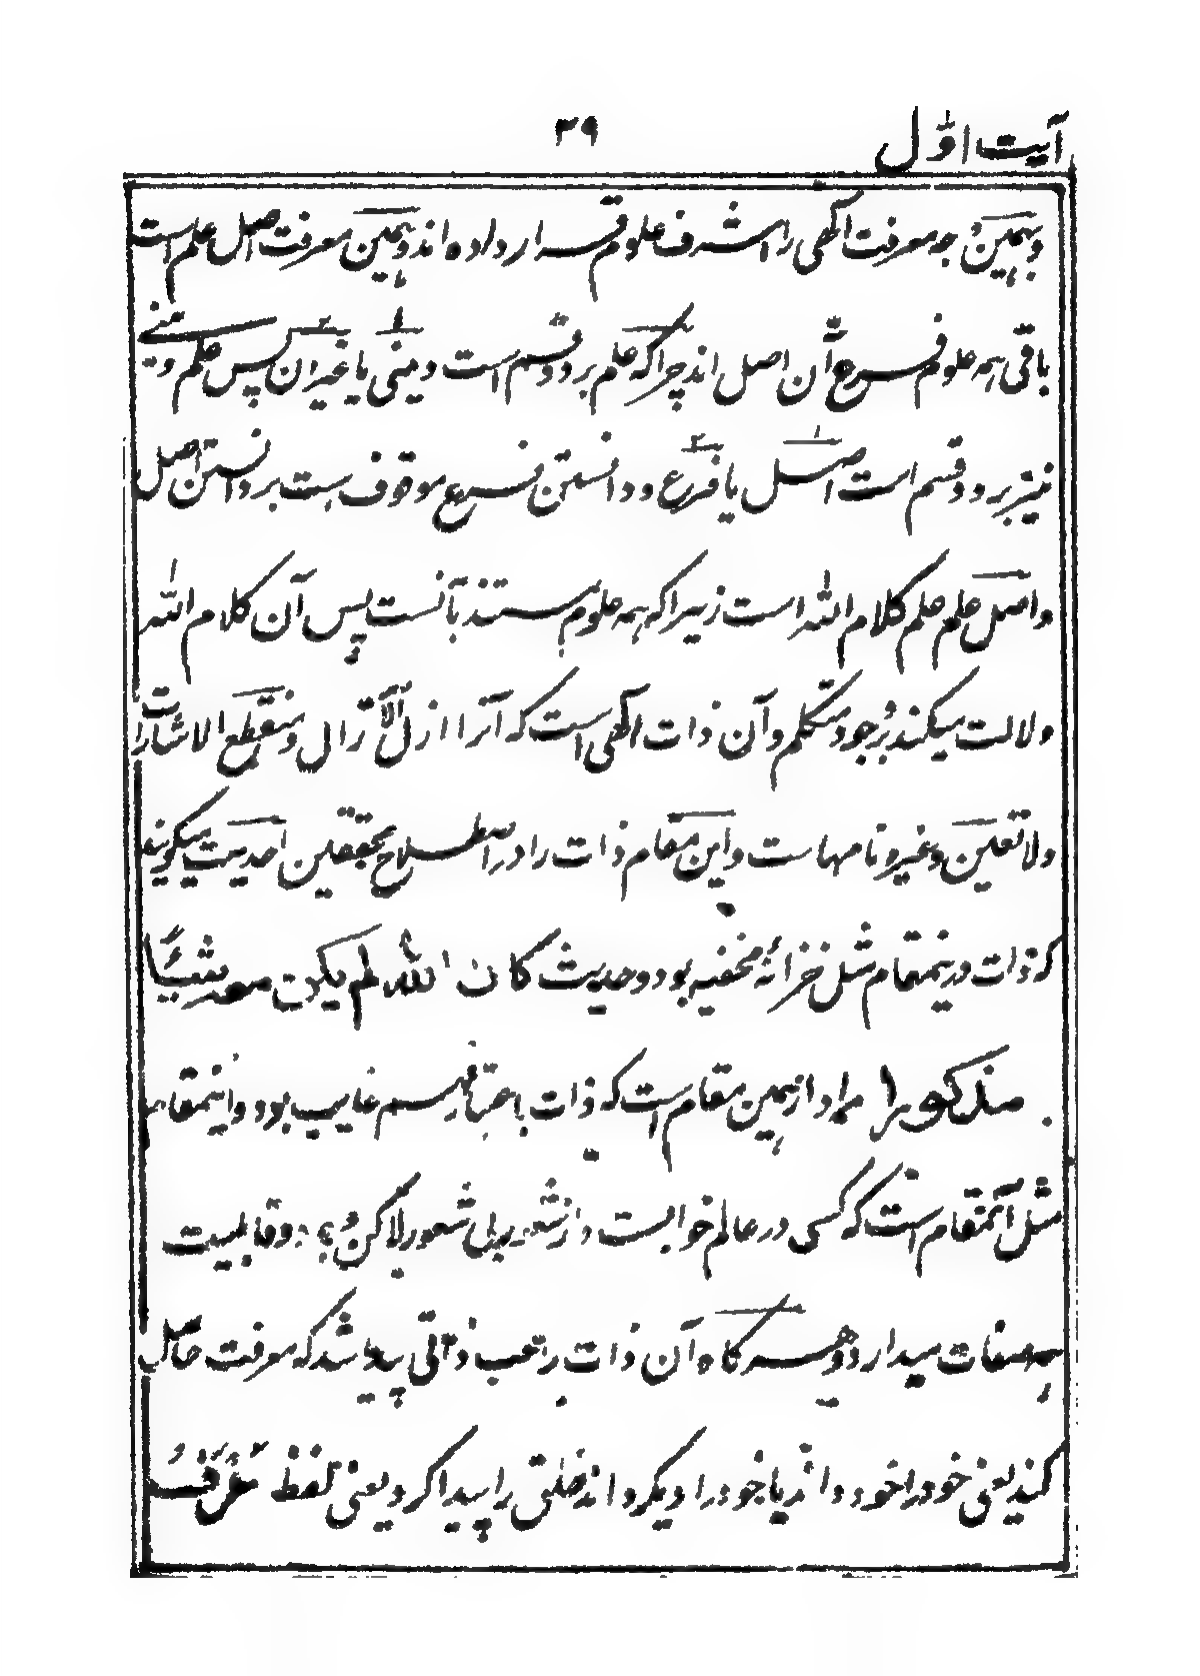 آیت اوّل ۳۹
وبہمین وجہ معرفت الٰہی را اشرف علوم قرار داده اند وہمین معرفت اصل علم است
باقی ہمہ علوم فرع آن اصل اند چرا کہ علم بر دو قسم است دینی یا غیر آن پس علم دینے
نیز بر دو قسم است اصل یا فرع و دانستن فرع موقوف ہست بر دانستن اصل
واصل علم علم کلام اللّٰہ است زیرا کہ ہمہ علوم مستند بآنست پس آن کلام اللّٰہ
دلالت میکند بُر جود متکلم وآن ذات الٰہی است کہ آنرا ازل آلازال و منقطع الاشارات
ولا تعین وغیرہ نامہاست واین مقام ذات را در اصطلاح محققین احدیت میگویند
کہ ذات درینمقام مثل خزانۂ مخفیہ بود وحدیث کان اللّٰہ لم یکن معہ شیئًا
مذکورا مراد از ہمین مقام است کہ ذات باعتبار فہم غایب بود و اینمقام
مثل آنمقام است کہ کسی در عالم خوابست و از شعور بی شعور لاکن وقابلیت
صفات میدارد وہر گاه آن ذات را تعب ذاتی پیدا شد کہ معرفت حاصل
کند یعنی خود را خود داند یا خود را دیگر داند خلق را پیدا کرد یعنی لفظ عُرَفُ